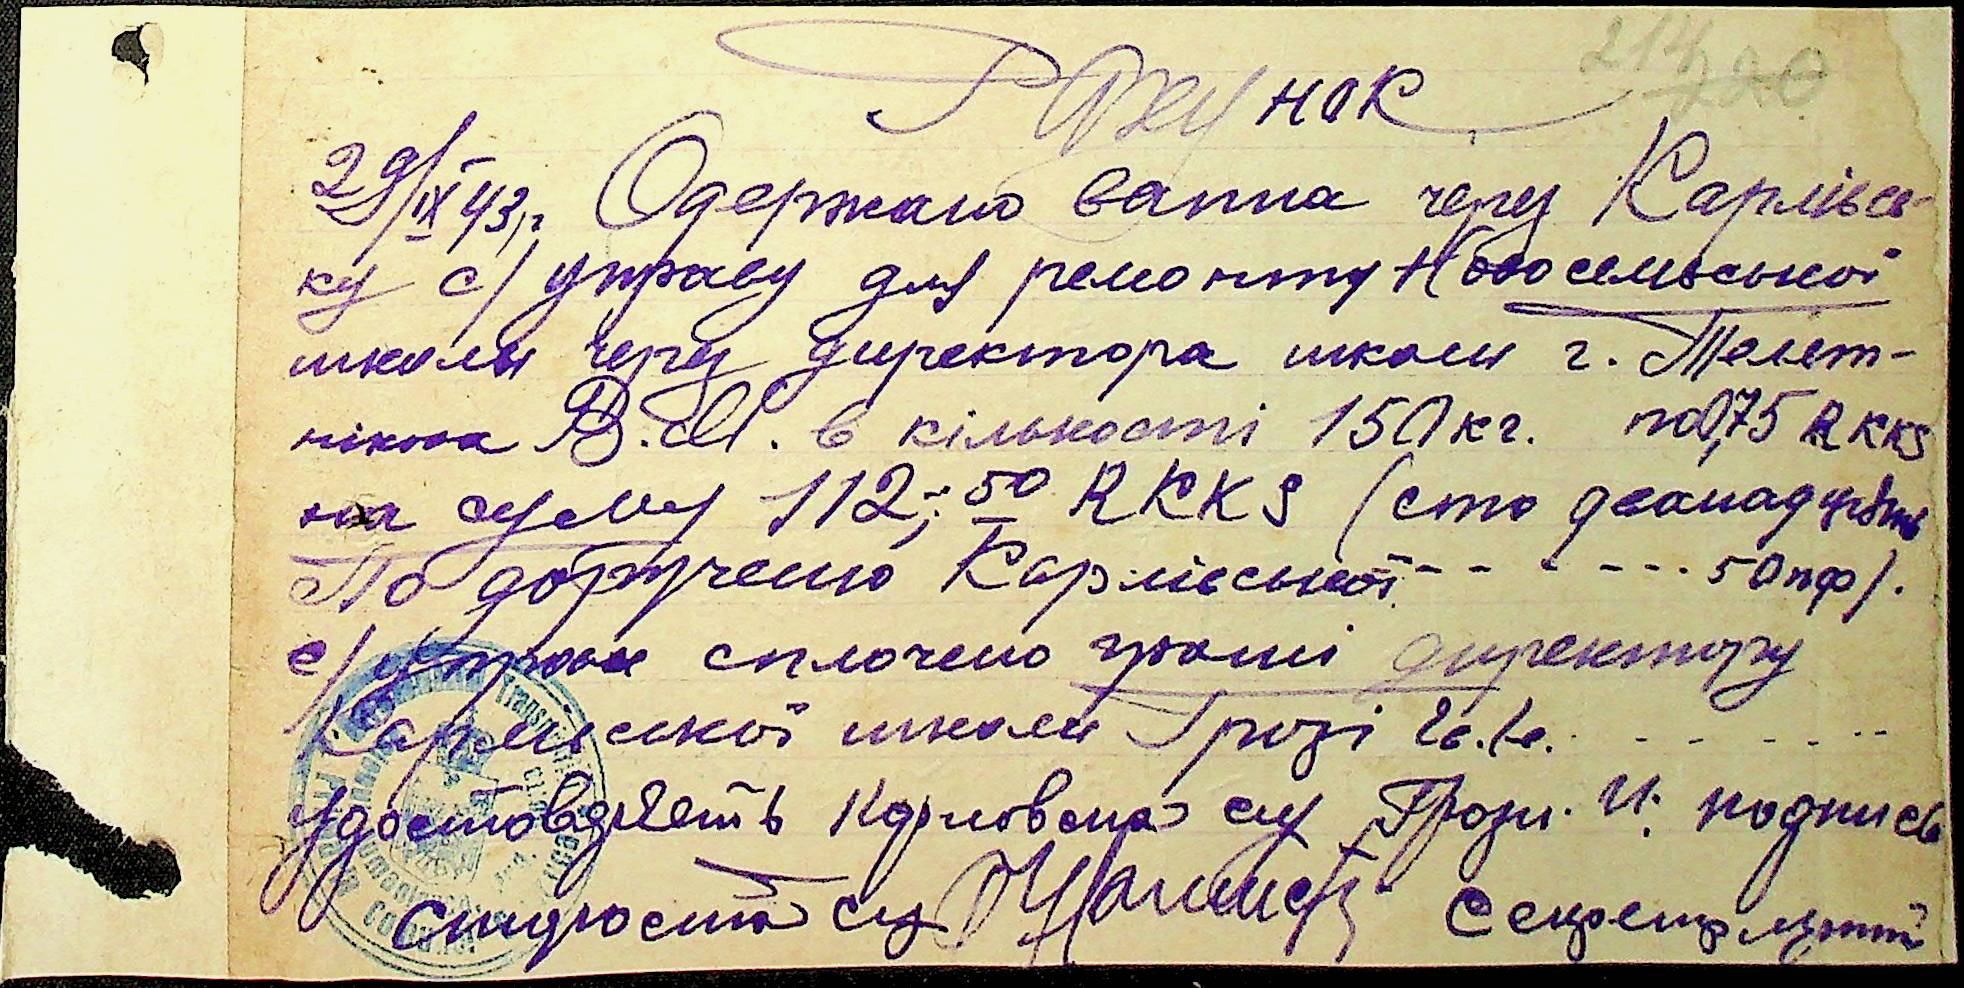 214
220
Рахунок
29/IX 43 р. Одержано вапна через Карлівсь-
ку с/управу для ремонту Новосельської
школи через директора школи г. Телет-
нікова В.М. в кількості 150 кг. по 0,75 RKKS
на суму 112,50 RKKS (сто дванадцять
По дорученю Карлівської - - - - - 50 пф).
с/управи сплочено гроші директору
Карлівської школи Грозі
Удостовдряеть Карловска су Грози. И. подпись
Староста су Секретарь